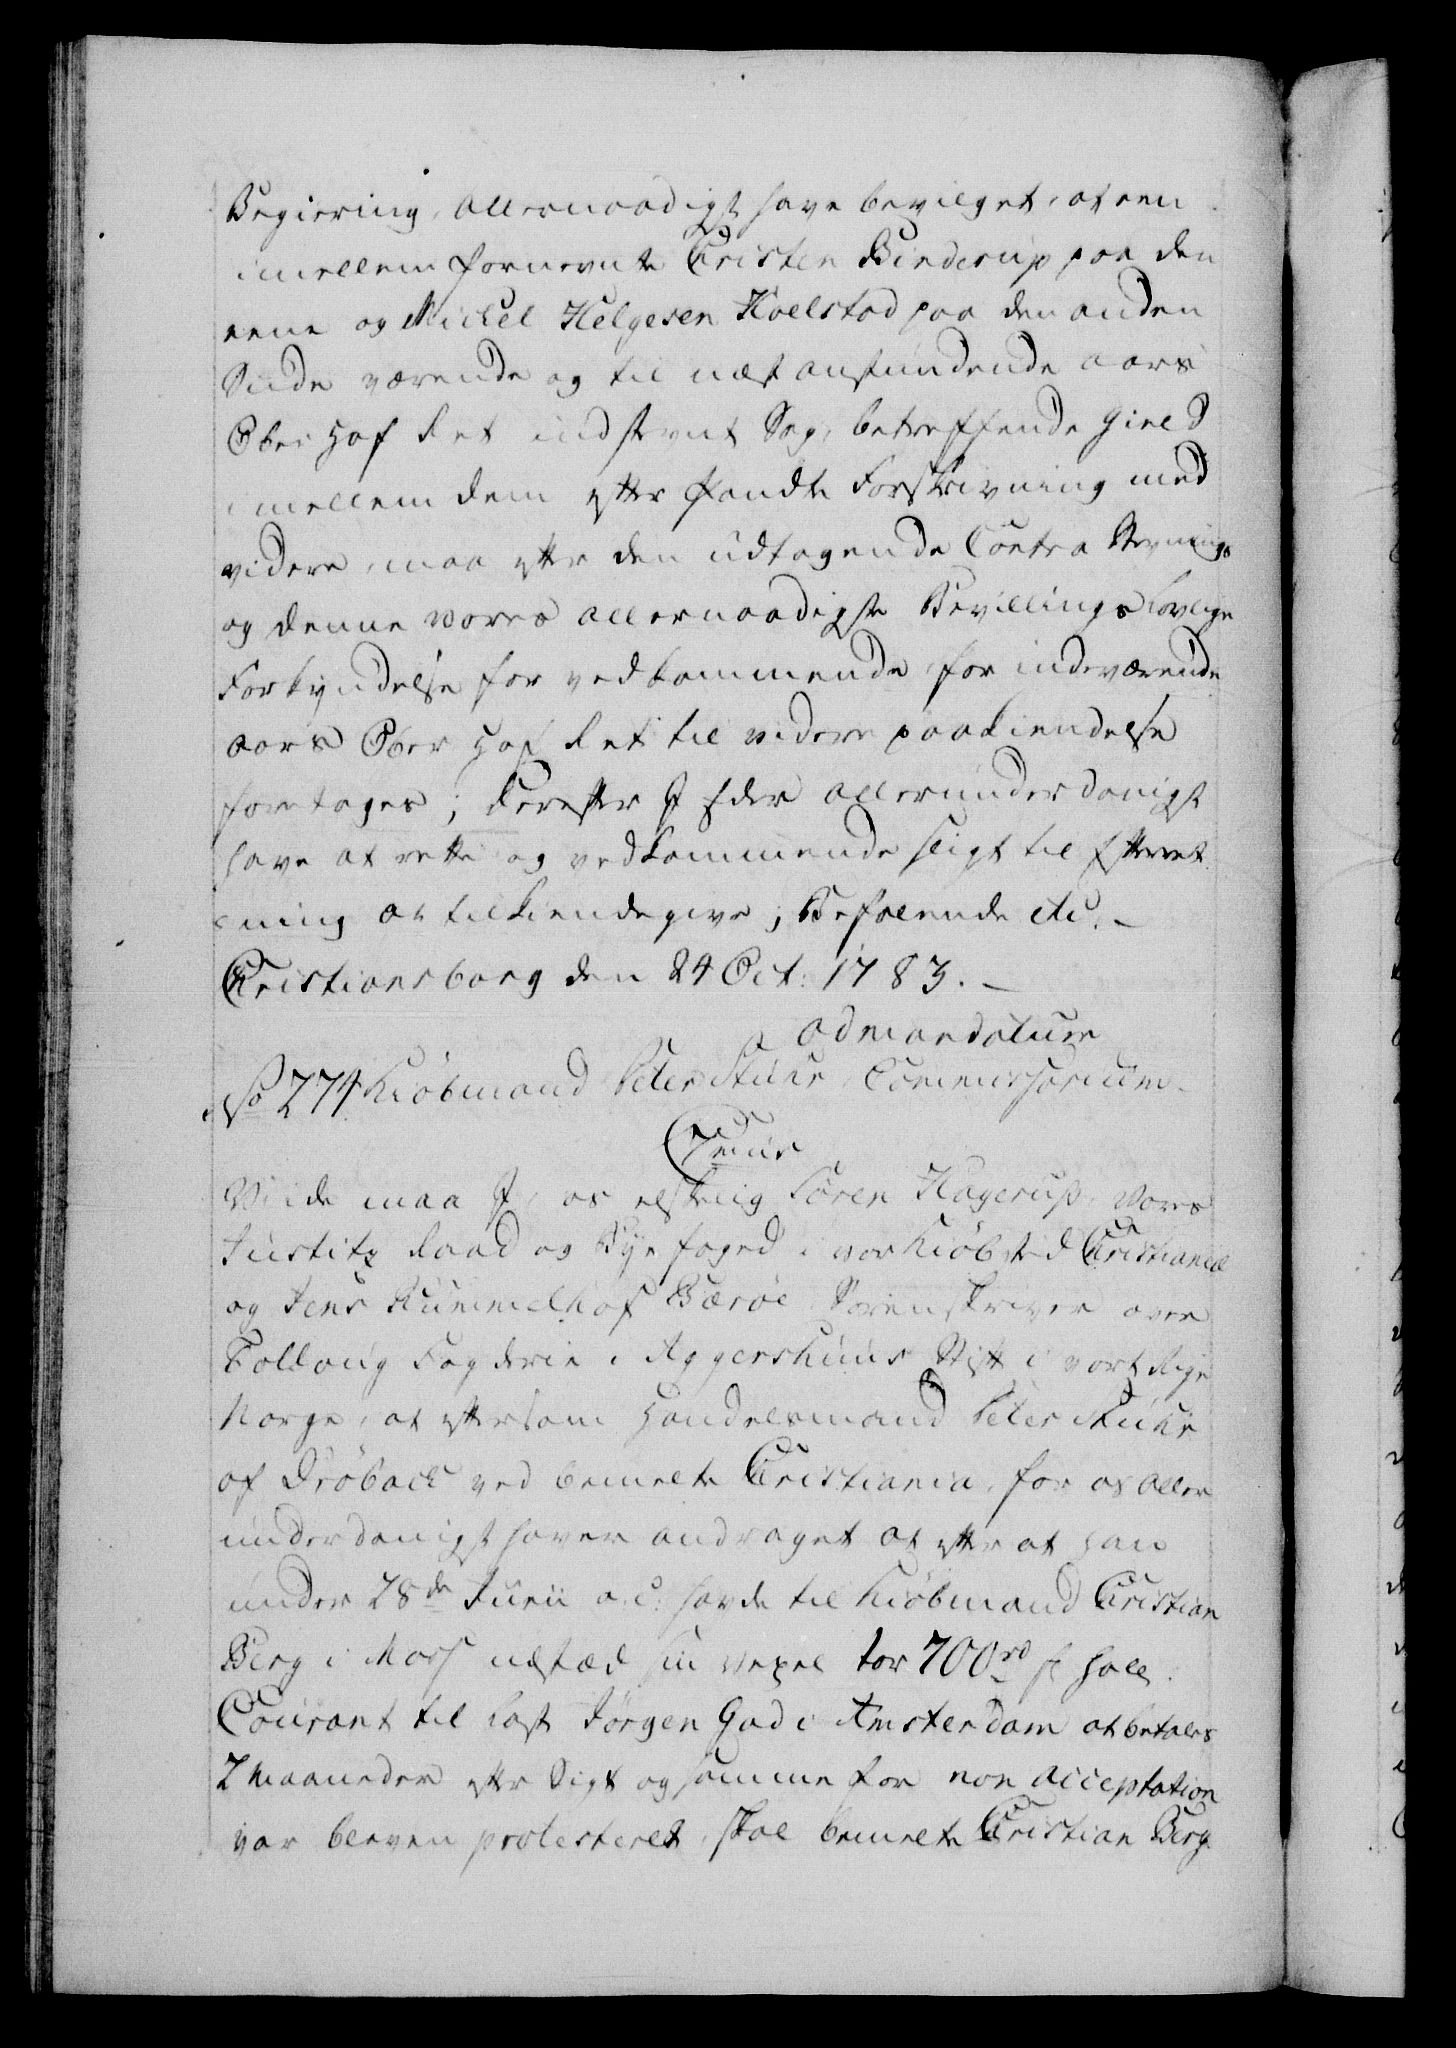 Begiering, allernaadigst have bevilget, at een
imellem fornevnte Christen Binderup paa den
eene og Michel Helgesen Hoelstad paa den anden
Side værende og til næst anstundende aars
Ober Hof Ret indstevnt Sag, betreffende Gield
imellem dem efter Pandte Forskrivning med
videre, maa efter den udtagende Contra Stevnings
og denne vores allernaadigste Bevillings lovlige
Forkyndelse for vedkommende, for indeværende
aars Ober Hof Ret til videre paakiendelse
foretages; Derefter I Eder allerunderdanigst
have at rette og vedkommende sligt til Efterret
ning at tilkiendegive; Befalende etc. –
Christiansborg den 24 Oct: 1783. –
ad mandatum
No 274 Kiöbmand Peter Stuhr, Commissorium.
C 7mus
Viide maa I, os elskelig Sören Hagerup, Vores
Justitz Raad og Bye foged i vor Kiöbsted Christiania
og Jens Rummelhof Bæröe Sorenskriver over
Folloug Fogderie i Aggershuus Stift i vort Rige
Norge, at eftersom Handelsmand Peter Stuhr
af Dröback ved bemelte Christiania, for os aller
underdanigst haver andraget at efter at han
under 28de Junii a: c: havde til Kiöbmand Christian
Berg i Moss udstæd sin vexel for 700 rd sl holl.
Courant til last Jörgen Gad i Amsterdam at betales
2 Maaneder efter Sigt og samme for non acceptation
var bleven protesteret, skal bemelte Christian Berg